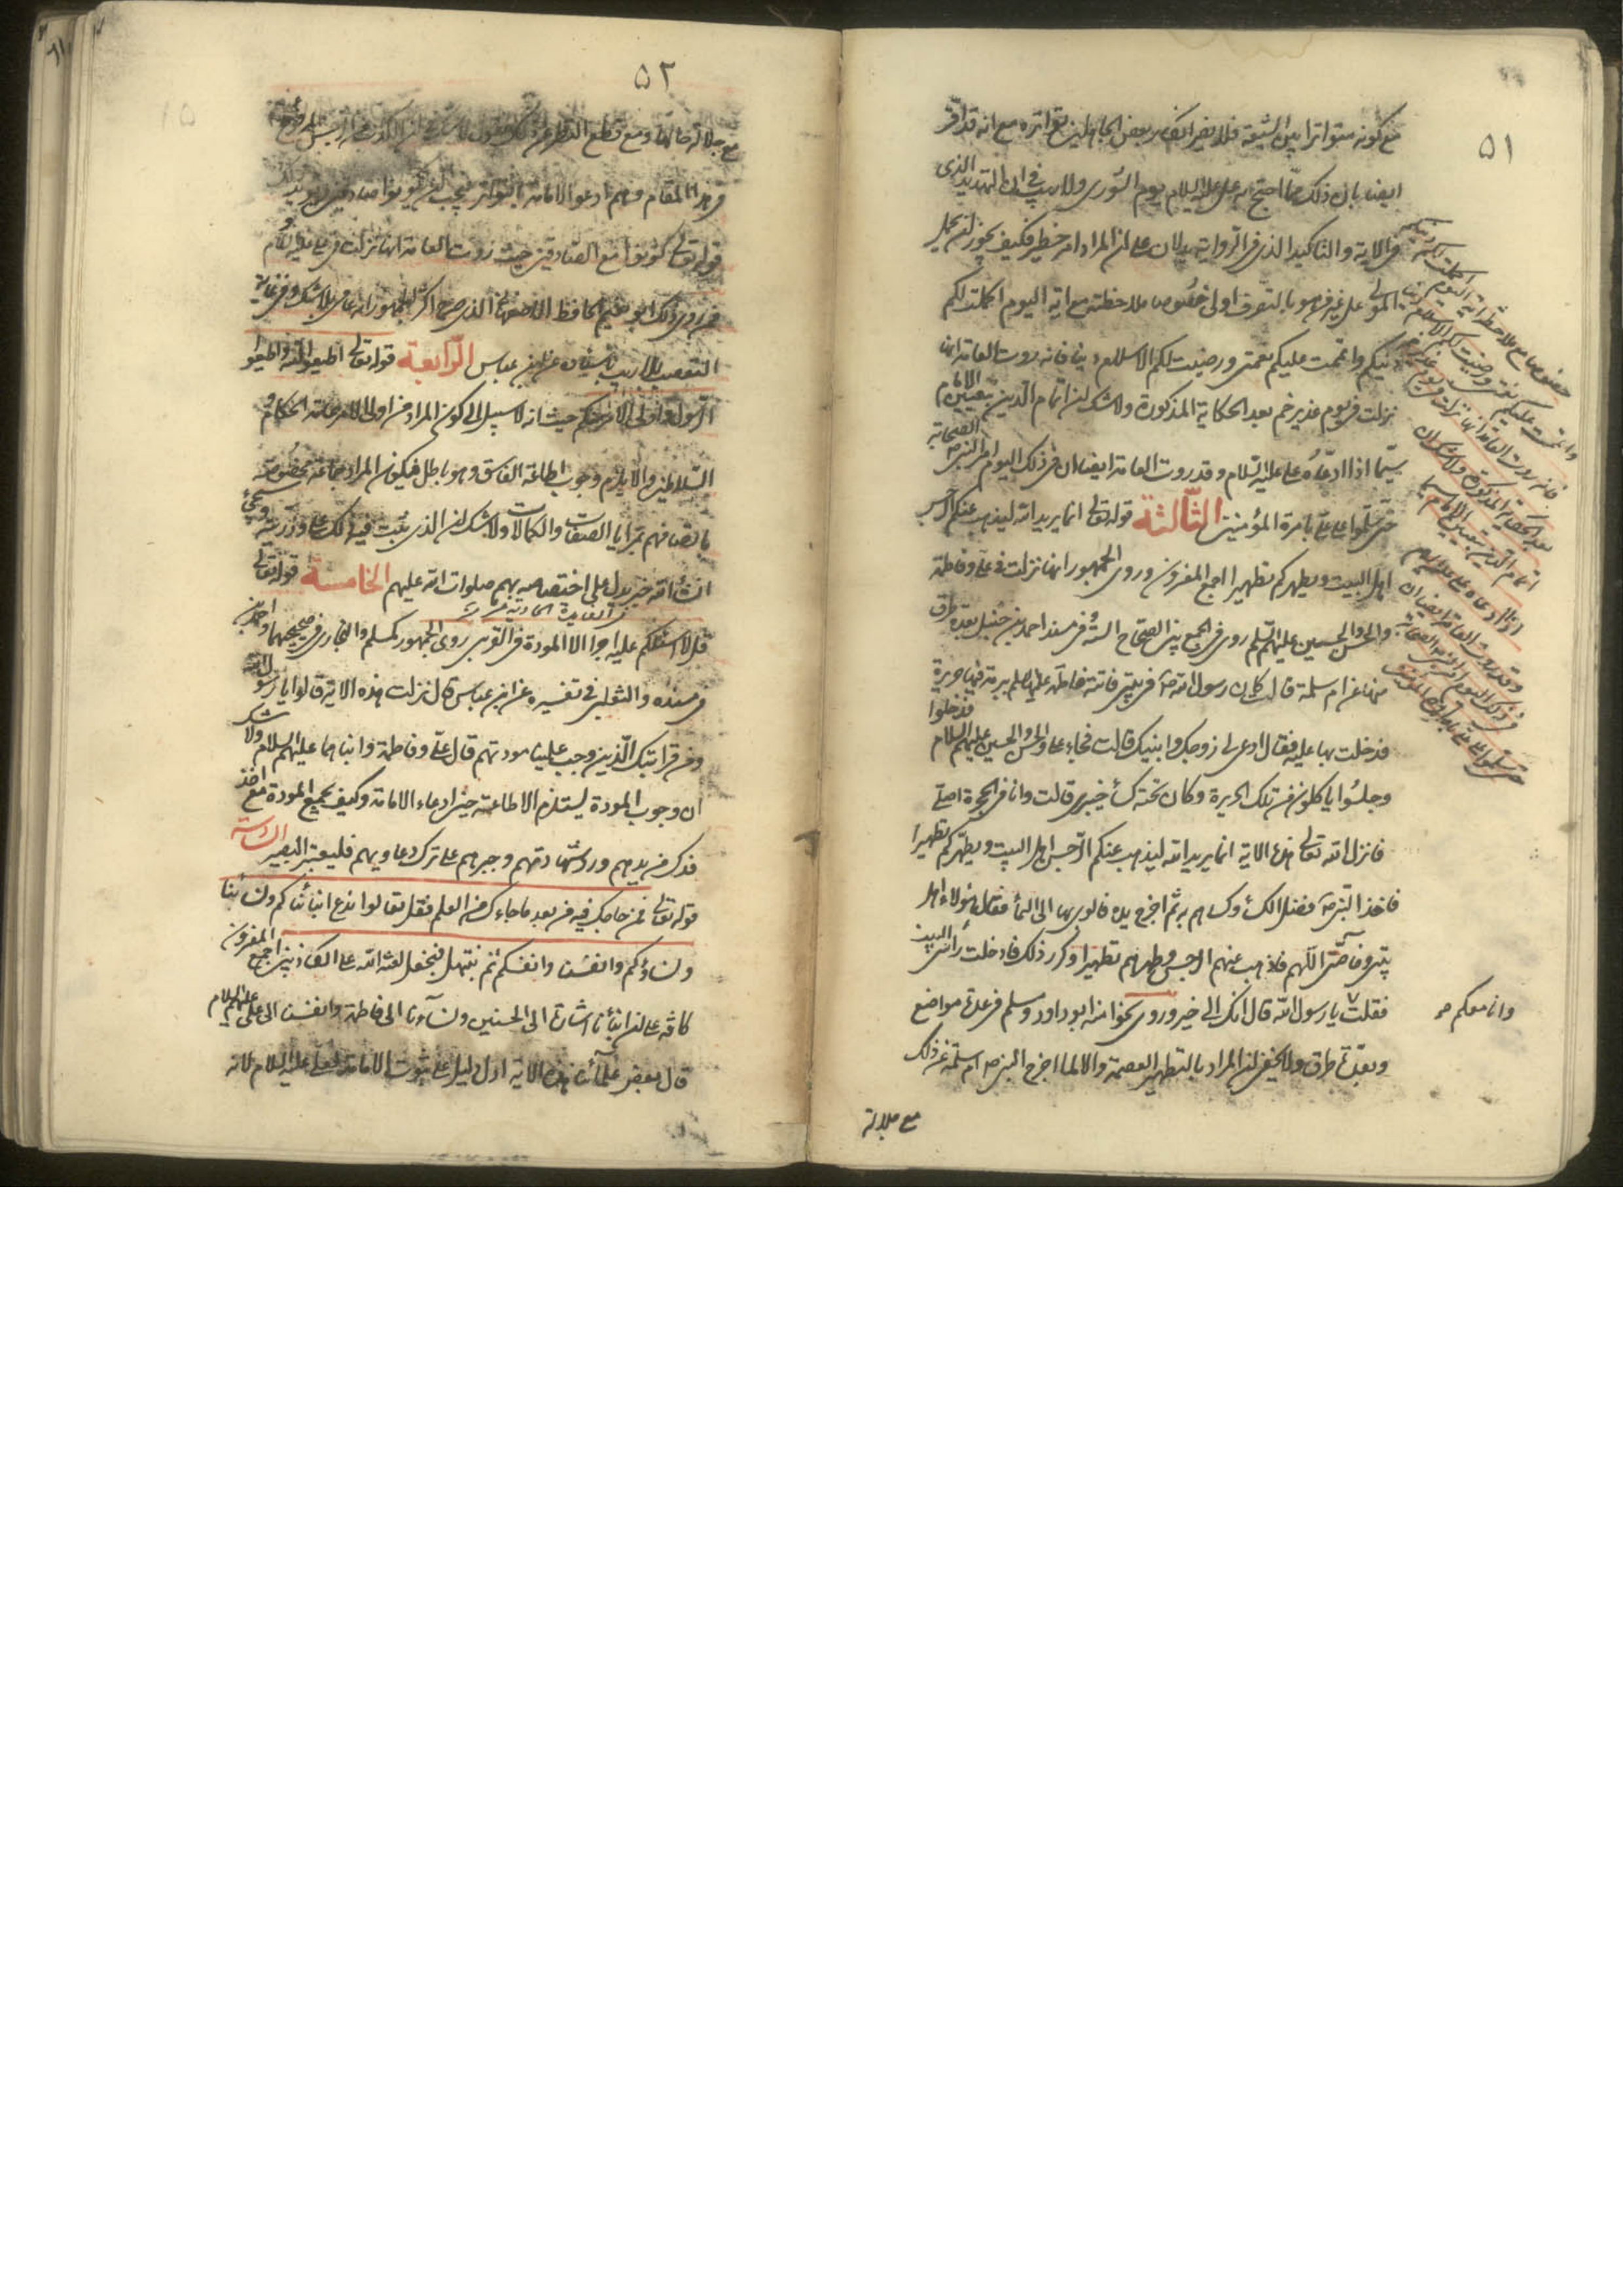 ٥١
مع كونه متواترا بين الشيعة فلا يضر انكار بعض الجاهلين تواتره مع انه قد اقر
ايضا بان ذلك مما احتج به على عليه السلام يوم الشورى ولا ريب في ان التهديد الذى
فى الاية والتاكيد الذى فى الرواية يدلان على ان المراد امر خطير فكيف يجوز ان يحمل
المولى على غير من هو بالتصرف اولى خصوصا ملاحظته مع اية اليوم اكملت لكم
دينكم واتممت عليكم نعمتى ورضيت لكم الاسلام دينا فانه روت العامة انها
نزلت فى يوم غدير خم بعد الحكاية المذكورة ولا شك ان اتمام الدين بتعيين الامام
سيّما اذا ادعاه على عليه السّلام وقد روت العامة ايضا ان فى ذلك اليوم امر النبى ص الصحابة
حتى سلّموا على على بامرة المؤمنين الثّالثة قوله تعالى انما يريد الله ليذهب عنكم الرجس
اهل البيت ويطهركم تطهيرا اجمع المفسرون وروى الجمهور انها نزلت فى على وفاطمة
والحسن والحسين عليهم السّلم روى فى الجمع بين الصحاح الستة وفى مسند احمد بن حنبل بعدة طرق
منها عن ام سلمة قالت كان رسول الله ص فى بيتى فاتته فاطمة عليها سلم ببرمة فيها حريرة
فدخلت بها عليه فقال ادعى لى زوجك وابنيك قالت فجاء على والحسن والحسين عليهم السلام فدخلوا
وجلسوا ياكلون من تلك الحريرة وكان تحته كساء خيبرى قالت وانا فى الحجرة اصلّى
فانزل الله تعالى هذه الاية انما يريد الله ليذهب عنكم الرّجس اهل البيت ويطهّركم تطهيرا
فاخذ النبى ص فضل الكساء وكساهم به ثم اخرج يده فالوى بها الى السماء فقال هؤلاء اهل
بيتى وخاصّتى اللّهم فاذهب عنهم الرجس وطهرهم تطهيرا وكرر ذلك فادخلت راسى البيت
فقلت يا رسول الله قال انك الى خير وروى نحوا منه ابو داود ومسلم فى عدة مواضع
وانا معكم
وبعدّة طرق ولا يخفى ان المراد بالتطهير العصمة والا لما اخرج النبى ص ام سلمة عن ذلك
مع جلالة
خصوصا مع ملاحظة اية اليوم اكملت لكم دينكم
واتممت عليكم نعمتى ورضيت لكم الاسلام دينا
فانه روت العامة انها نزلت فى يوم غدير خم
بعد الحكاية المذكورة ولا شك ان
اتمام الدين بتعيين الامام سيما
اذا ادعاه على عليه السلام
وقد روت العامة ايضا ان
فى ذلك اليوم امر النبى الصحابة
حتى سلموا على على بامرة المؤمنين
٥٢
مع جلالة حالها ومع قطع النظر عن ذلك
فى هذا المقام فهم ادعوا الامامة بالتواتر فيجب ان يكونوا صادقين
قوله تعالى كونوا مع الصّادقين حيث روت العامة انها نزلت فى على عليه السلام
فمن روى ذلك ابو نعيم الحافظ الاصفهانى الذى صرح اكثر الجمهور انه عامى بلا شك وفى غاية
التعصب بلا ريب باسناده عن ابن عباس الرّابعة قوله تعالى اطيعوا الله واطيعوا
الرّسول واولى الامر منكم حيث انه لا سبيل الى كون المراد من اولى الامر عامة الحكام و
السّلاطين والا يلزم وجوب اطاعة الفاسق وهو باطل فيكون المراد جماعة مخصوصة
باتصافهم بمزايا الصفات والكمالات ولا شك ان الذى ثبت فيه ذلك على وذريته وسيجئ
انشاء الله خبر يدل على اختصاصه بهم صلوات الله عليهم الخامسة قوله تعالى
قل لا اسئلكم عليه اجرا الا المودة فى القربى روى الجمهور كمسلم والبخارى فى صحيحيهما واحمد بن
فى مسنده والثعلبى فى تفسيره عن ابن عباس قال نزلت هذه الاية قالوا يا رسول الله
ومن قرابتك الّذين وجب علينا مودتهم قال على وفاطمة وابناهما عليهم السلام ولا شك
ان وجوب المودة يستلزم الاطاعة حين ادعاء الامامة وكيف يجمع المودة مع اخذ
فدك من يدهم ورد شهادتهم وجبرهم على ترك دعاويهم فليعتبر البصير السادسة
قوله تعالى فمن حاجك فيه من بعد ما جاءك من العلم فقل تعالوا ندع ابنائنا وابنائكم ونسائنا
ونساءكم وانفسنا وانفسكم ثم نبتهل فنجعل لعنة الله على الكاذبين اجمع المفسرون
كافة على ان ابنائنا اشارة الى الحسنين ونسآءنا الى فاطمة وانفسنا الى على عليهم السلام
قال بعض علمآئنا هذه الاية ادل دليل على ثبوت الامامة لعلى عليه السلام لانه